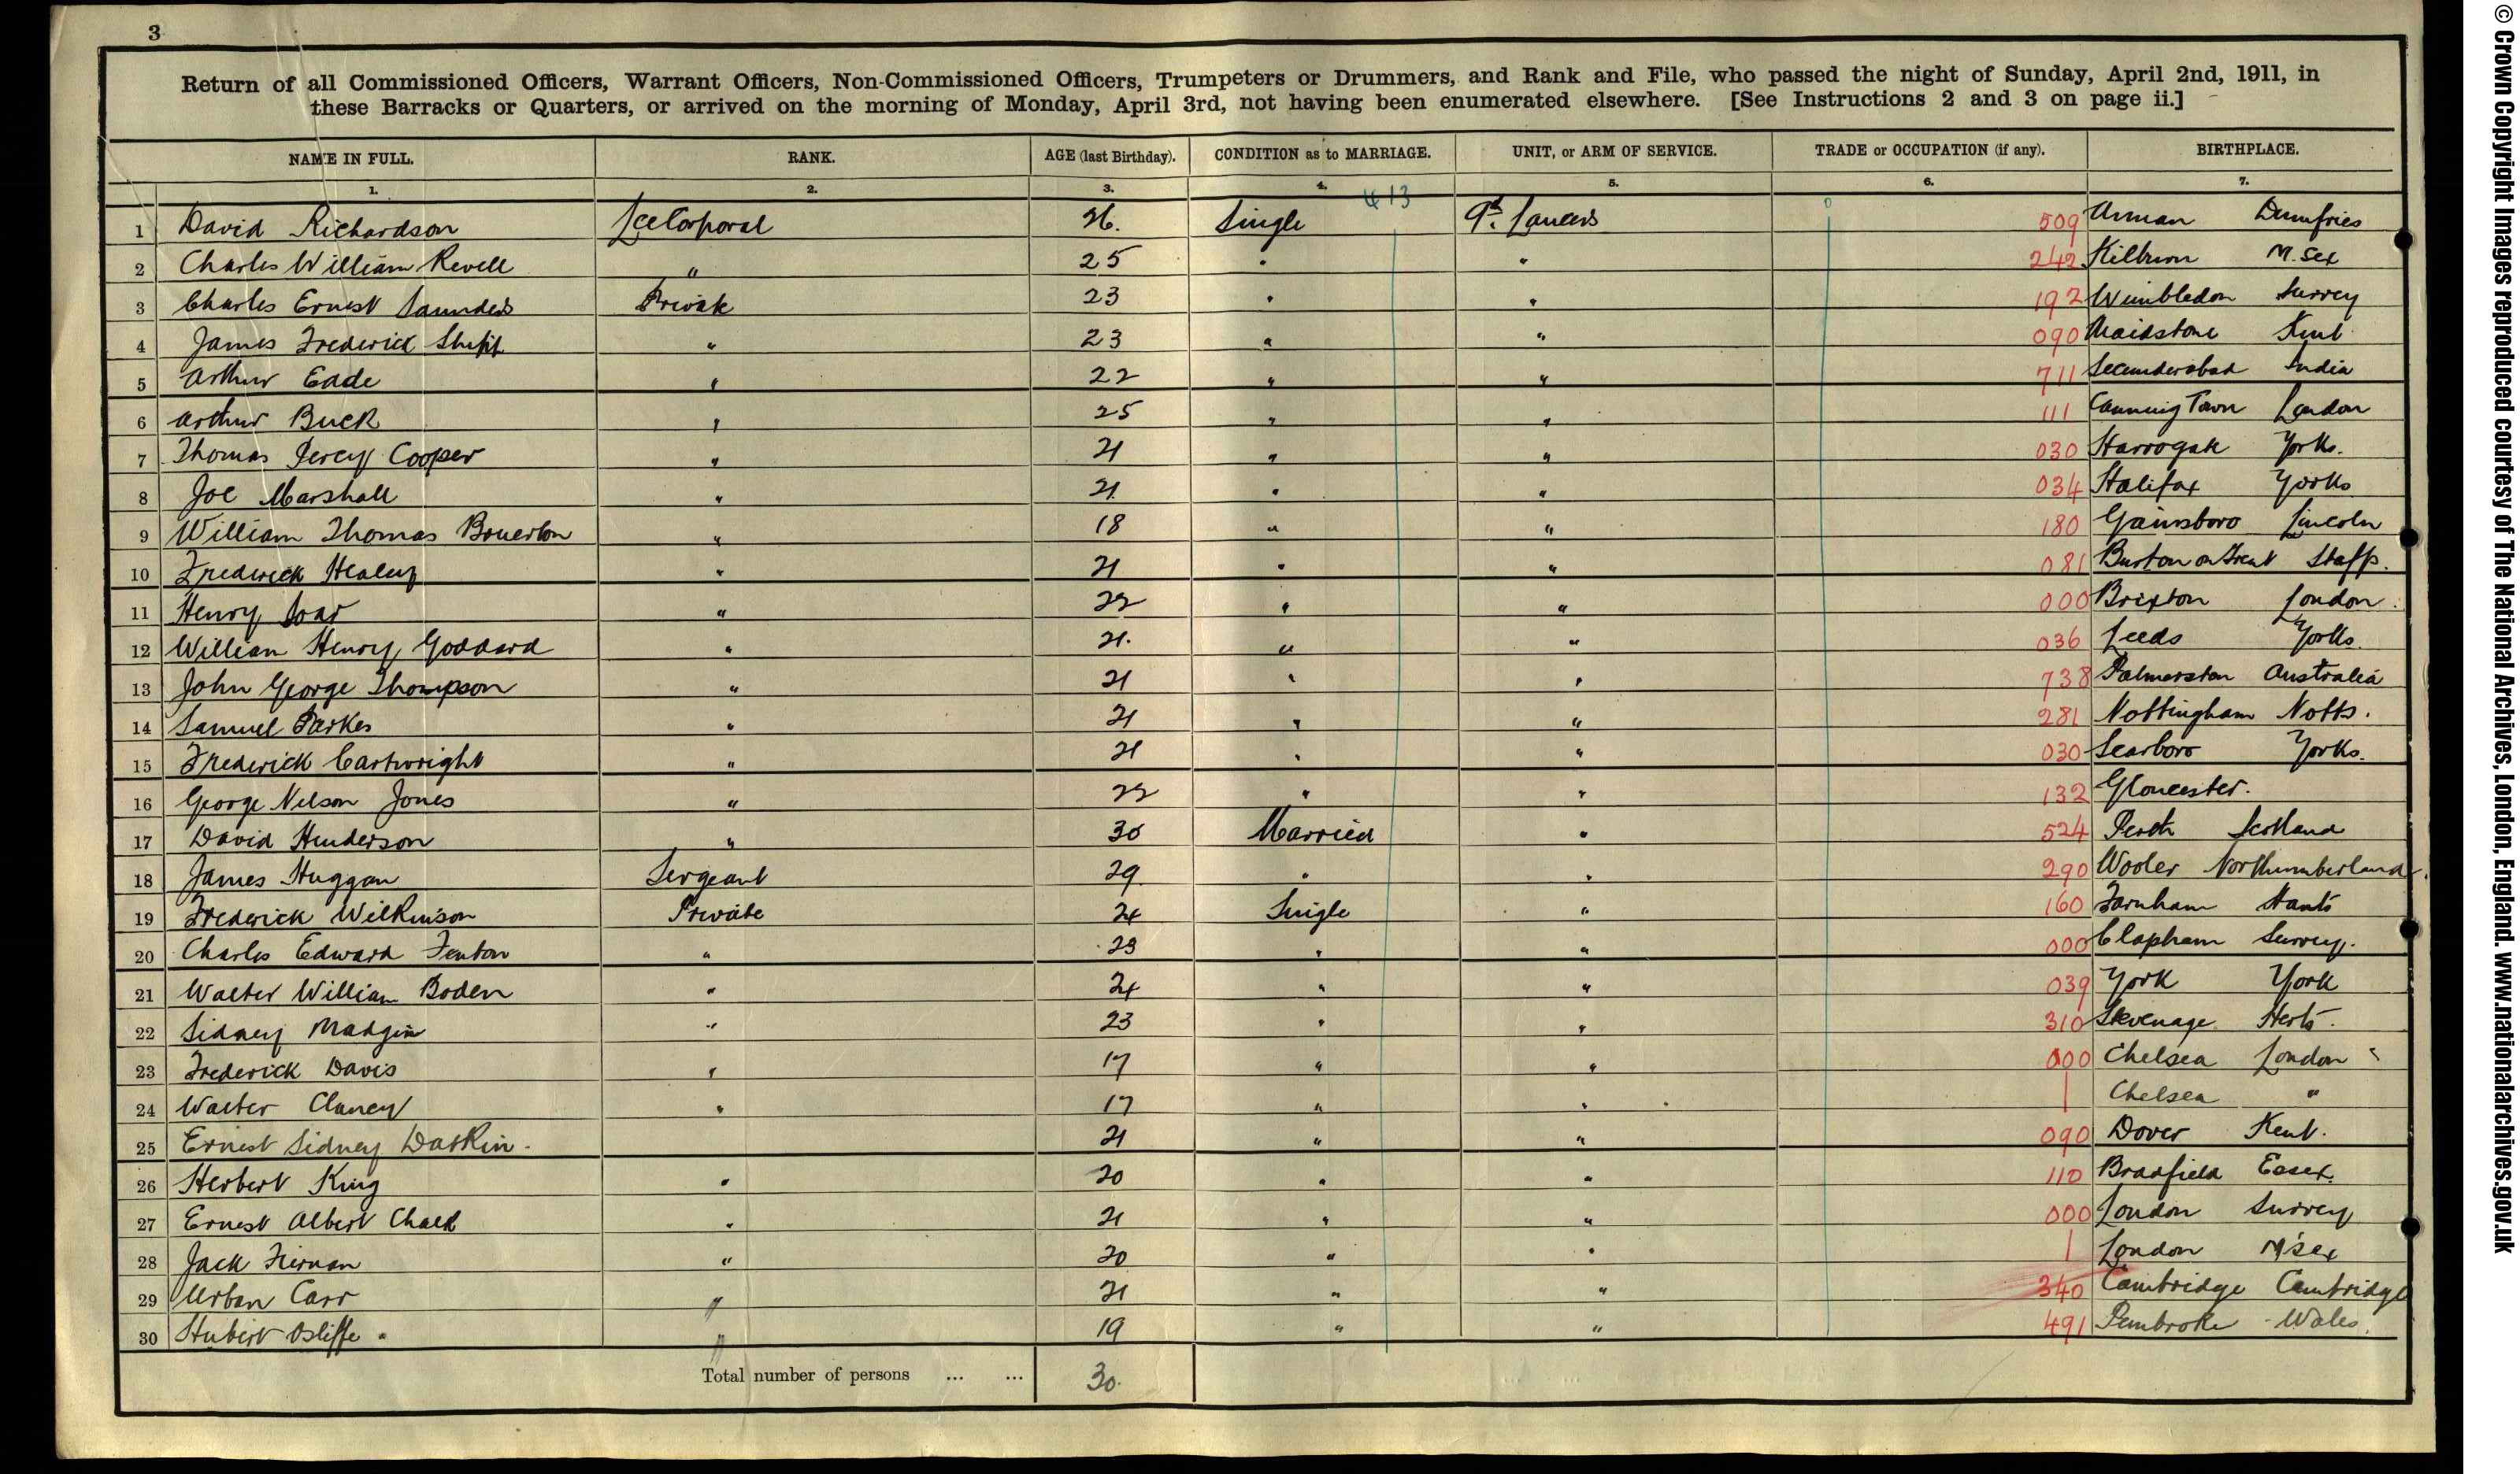 3
Return of all Commissioned Officers, Warrant Officers, Non-Commissioned Officers, Trumpeters or Drummers, and Rank and File, who passed the night of Sunday, April 2nd, 1911, in
these Barracks or Quarters, or arrived on the morning of Monday, April 3rd, not having been enumerated elsewhere. [See Instructions 2 and 3 on page ii.]
NAME IN FULL. RANK. AGE (last Birthday). CONDITION as to MARRIAGE. UNIT, or ARM OF SERVICE. TRADE or OCCUPATION (if any). BIRTHPLACE.
1. 2. 3. 4. 5. 6. 7.
1 David Richardson Lce Corporal 26. Single 9th Lancers 509 Annan Dumfries
2 Charles William Revell " 25 " " 242 Kilburn M.sex
3 Charles Ernest Saunders Private 23 " " 192 Wimbledon Surrey
4 James Frederick 23 " " 090 Maidstone Kent
5 Arthur Eade " 22 " " 711 Secunderabad India
6 Arthur Buck " 25 " " 111 Canning Town London
7 Thomas Percy Cooper " 21 " " 030 Harrogate Yorks.
8 Joe Marshall " 21 " " 034 Halifax Yorks
9 William Thomas " 18 " " 180 Gainsboro Lincoln
10 Frederick Healey " 21 " " 081 Burton on Trent Staffs.
11 Henry Soar " 22 " " 000 Brixton London.
12 William Henry Goddard " 21. " " 036 Leeds Yorks.
13 John George Thompson " 21 " " 738 Palmerston Australia
14 Samuel Parkes " 21 " " 281 Nottingham Notts.
15 Frederick Cartwright " 21 " " 030 Scarboro Yorks.
16 George Nelson Jones " 22 " " 132 Gloucester.
17 David Henderson " 30 Married " 524 Perth Scotland
18 James Huggan Sergeant 29 " " 290 Wooler Northumberland
19 Frederick Wilkinson Private 24 Single " 160 Farnham Hants
20 Charles Edward Fenton " 23 " " 000 Clapham Surrey.
21 Walter William Boden " 24 " " 039 York York
22 Sidney Madgin " 23 " " 310 Stevenage Herts.
23 Frederick Davis " 17 " " 000 Chelsea London
24 Walter Clancy " 17 " " Chelsea "
25 Ernest Sidney 21 " " 090 Dover Kent.
26 Herbert King " 20 " " 110 Bradfield Essex.
27 Ernest Albert Chalk " 21 " " 000 London Surrey
28 Jack Tiernan " 20 " " London M'sex
29 Urban Carr " 21 " " 340 Cambridge Cambridge
30 Hubert Osliffe " 19 " " 491 Pembroke Wales.
Total number of persons ... ... 30.
© Crown Copyright Images reproduced courtesy of The National Archives, London, England. www.nationalarchives.gov.uk